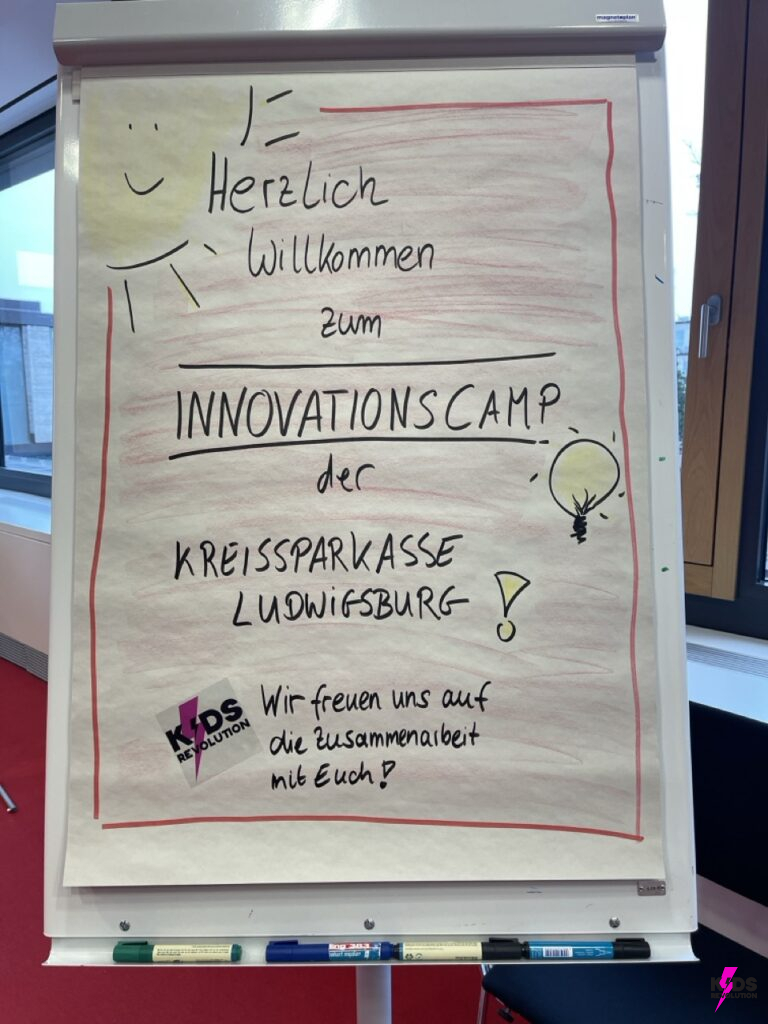 magnetoplan
Herzlich
Willkommen
zum
INNOVATIONSCAMP
der
KREISSPARKASSE
LUDWIGSBURG !
KIDS
REVOLUTION
Wir freuen uns auf
die Zusammenarbeit
mit Euch!
KIDS
REVOLUTION